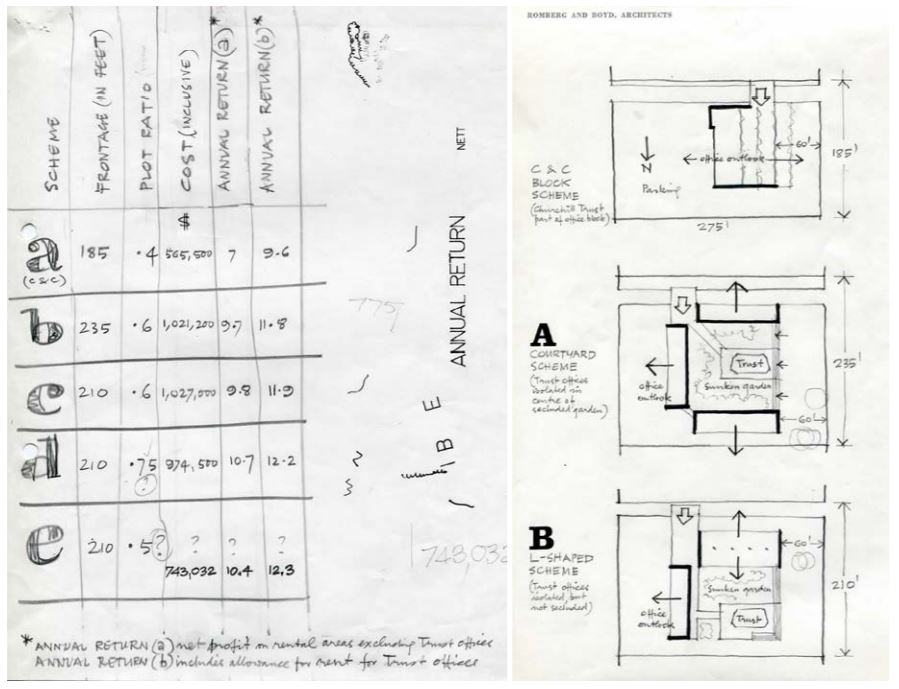 SCHEME
FRONTAGE (IN FEET)
PLOT RATIO
COST (INCLUSIVE)
* ANNUAL RETURN (a)
* ANNUAL RETURN (b)
$
a 185 .4 565,500 7 9.6
(C&C)
b 235 .6 1,021,200 9.7 11.8
c 210 .6 1,027,000 9.8 11.9
d 210 .75 974,500 10.7 12.2
(?)
e 210 .5? ? ? ?
743,032 10.4 12.3
* ANNUAL RETURN (a) net profit on rental areas excluding Trust offices
ANNUAL RETURN (b) includes allowance for rent for Trust offices
775
ANNUAL RETURN NETT
B E
743,032
ROMBERG AND BOYD, ARCHITECTS
C & C
BLOCK
SCHEME
(Churchill Trust
part of office block)
N
Parking
office outlook
60'
185'
275'
A
COURTYARD
SCHEME
(Trust offices
isolated in
centre of
secluded garden)
office
outlook
Trust
Sunken garden
60'
235'
B
L-SHAPED
SCHEME
(Trust offices
isolated, but
not secluded)
office
outlook
Sunken garden
Trust
60'
210'